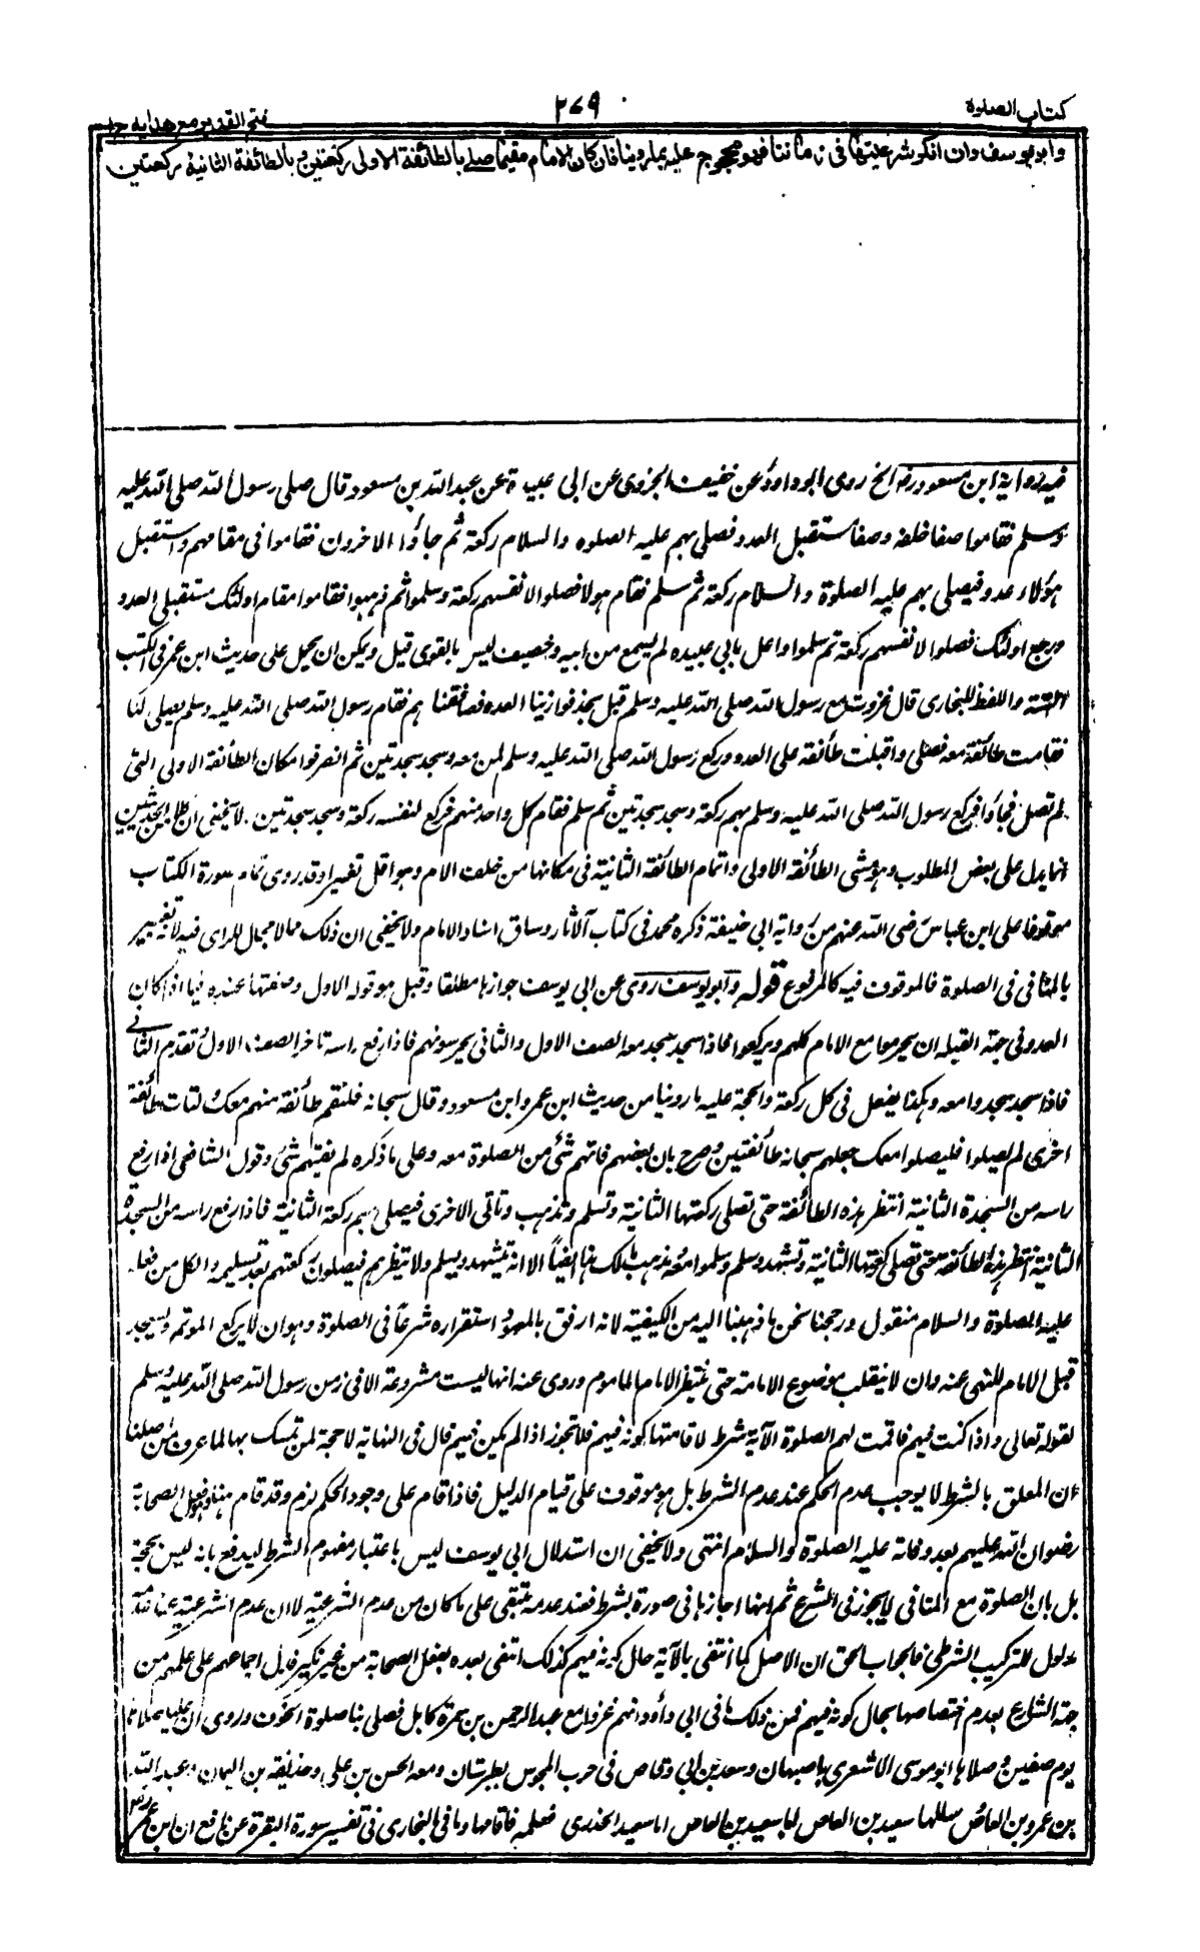 كتاب الصلوة
٢٦٩
فتح القدير مع هدايه ج١
وابو يوسف وان انكر شرعيتها فى زماننا فهو محجوج عليه بما روينا فان كان الامام مقيما صلى بالطائفة الاولى ركعتين وبالطائفة الثانية ركعتين
فيه رواية ابن مسعود رضه الخ روى ابو داود عن خصيف الجزرى عن ابى عبيدة عن عبدالله بن مسعود قال صلى رسول الله صلى الله عليه
وسلم فقاموا صفا خلفه وصفا مستقبل العدو فصلى بهم عليه الصلوه والسلام ركعة ثم جاؤا الاخرون فقاموا فى مقامهم واستقبل
هؤلاء العدو فيصلى بهم عليه الصلوة والسلام ركعة ثم سلم فقام هولاء فصلوا لانفسهم ركعة وسلموا ثم ذهبوا فقاموا مقام اولئك مستقبلى العدو
ورجع اولئك فصلوا لانفسهم ركعة ثم سلموا واعل بابي عبيده لم يسمع من ابيه وخصيف ليس بالقوى قيل ويمكن ان يحمل على حديث ابن عمر فى الكتب
الستة واللفظ للبخارى قال غزوت مع رسول الله صلى الله عليه وسلم قبل نجد فوازينا العدو فصاففنا هم فقام رسول الله صلى الله عليه وسلم يصلى لنا
فقامت طائفة معه فصلى واقبلت طائفة على العدو وركع رسول الله صلى الله عليه وسلم لمن معه وسجد سجدتين ثم انصرفوا مكان الطائفة الاولى التى
لم تصل فجاؤا فركع رسول الله صلى الله عليه وسلم بهم ركعة وسجد سجدتين ثم سلم فقام كل واحد منهم فركع لنفسه ركعة وسجد سجدتين. لا يخفى ان كلا من الحديثين
انما يدل على بعض المطلوب وهو مشى الطائفة الاولى واتمام الطائفة الثانية فى مكانها من خلف الامام وهو اقل تغييرا وقد روى تمام صورة الكتاب
موقوفا على ابن عباس رضى الله عنهم من رواية ابى حنيفة ذكره محمد فى كتاب الآثار وساق اسناد الامام ولا يخفى ان ذلك مما لا مجال للراى فيه لانه تغيير
بالمنافى فى الصلوة فالموقوف فيه كالمرفوع قوله وابو يوسف روى عن ابى يوسف جوازها مطلقا وقيل هو قوله الاول وصفتها عنده فيما اذا كان
العدو فى جهة القبله ان يحرموا مع الامام كلهم ويركعوا فاذا سجد سجد معه الصف الاول والثانى يحرسونهم فاذا رفع راسه تاخر الصف الاول وتقدم الثانى
فاذا سجد سجدوا معه وهكذا يفعل فى كل ركعة والحجة عليه ما روينا من حديث ابن عمر وابن مسعود وقال سبحانه فلتقم طائفة منهم معك ولتات طائفة
اخرى لم يصلوا فليصلوا معك جعلهم سبحانه طائفتين وصرح بان بعضهم فاتهم شئ من الصلوة معه وعلى ما ذكره لم يفتهم شئ وقول الشافعى اذا رفع
راسه من السجدة الثانية انتظر هذه الطائفة حتى تصلى ركعتها الثانية وتسلم وتذهب وتاتى الاخرى فيصلى بهم ركعة الثانية فاذا رفع راسه من السجدة
الثانية انتظر هذه الطائفة حتى تصلى ركعتها الثانية وتشهد وسلم وسلموا معه ومذهب مالك هذا ايضاً الا انه يتشهد ويسلم ولا ينتظرهم فيصلون ركعتهم بعد تسليمه والكل من فعله
عليه الصلوة والسلام منقول ورجحنا نحن ما ذهبنا اليه من الكيفية لانه ارفق بالمعهود استقراره شرعاً فى الصلوة وهو ان لا يركع الموتم ويسجد
قبل الامام للنهى عنه وان لا ينقلب موضوع الامامة حتى ينتظر الامام الماموم وروى عنه انها ليست مشروعة الا فى زمن رسول الله صلى الله عليه وسلم
لقوله تعالى واذا كنت فيهم فاقمت لهم الصلوة الآية شرط لاقامتها كونه فيهم فلا تجوز اذا لم يكن فيهم قال فى النهاية لا حجة لمن تمسك بها لما عرف من اصلنا
ان المعلق بالشرط لا يوجب عدم الحكم عند عدم الشرط بل هو موقوف على قيام الدليل فاذا قام على وجود الحكم لزم وقد قام هنا وهو فعل الصحابة
رضوان الله عليهم بعد وفاته عليه الصلوة والسلام انتهى ولا يخفى ان استدلال ابى يوسف ليس باعتبار مفهوم الشرط ليدفع بانه ليس بحجة
بل بان الصلوة مع المنافى لا يجوز فى الشرع ثم انها اجازها فى صورة بشرط فعند عدمه تبقى على ما كان من عدم الشرعية لا ان عدم الشرعية عند عدمه
مدلول للتركيب الشرطى فالجواب الحق ان الاصل كما انتفى بالآية حال كونه فيهم كذلك انتفى بعده بفعل الصحابة من غير نكير فدل اجماعهم على علمهم من
جهة الشارع بعدم اختصاصها بحال كونه فيهم فمن ذلك ما فى ابى داؤد انهم غزوا مع عبدالرحمن بن سمرة كابل فصلى بنا صلوة الخوف وروى ان عليا صلاها
يوم صفين وصلاها ابو موسى الاشعرى باصبهان وسعد بن ابى وقاص فى حرب المجوس بطبرستان ومعه الحسن بن على وحذيفه بن اليمان وعبدالله
بن عمرو بن العاص وسالها سعيد بن العاص ابا سعيد الخدرى فعلمه فاقامها وما فى البخارى فى تفسير سورة البقرة عن نافع ان ابن عمر رض